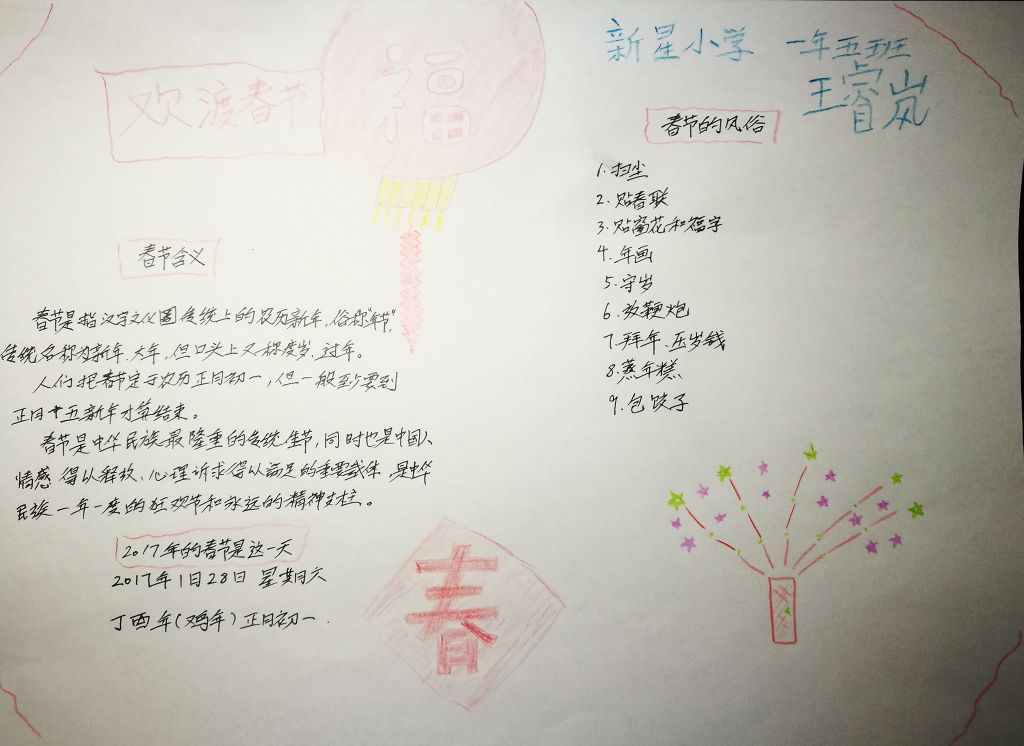 欢渡春节
福
新星小学 一年五班
王睿岚
春节含义
春节是指汉字文化圈传统上的农历新年，俗称“年节”，
传统名称为新年、大年，但口头上又称度岁、过年。
人们把春节定于农历正月初一，但一般至少要到
正月十五新年才算结束。
春节是中华民族最隆重的传统佳节，同时也是中国人
情感得以释放、心理诉求得以满足的重要载体，是中华
民族一年一度的狂欢节和永远的精神支柱。
2017年的春节是这一天
2017年1月28日 星期六
丁酉年（鸡年）正月初一.
春
春节的风俗
1.扫尘
2.贴春联
3.贴窗花和福字
4.年画
5.守岁
6.放鞭炮
7.拜年、压岁钱
8.蒸年糕
9.包饺子